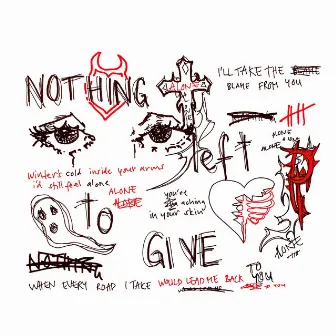 NOTHING
ALONE
I'LL TAKE THE
BLAME FROM YOU
left
ALONE
ALONE
Winter's cold inside your arms
i'd still feel alone
ALONE
you're
aching
in your skin
TO
GIVE
ALONE
NOTHING
WHEN EVERY ROAD I TAKE WOULD LEAD ME BACK
TO
YOU
TO YOU